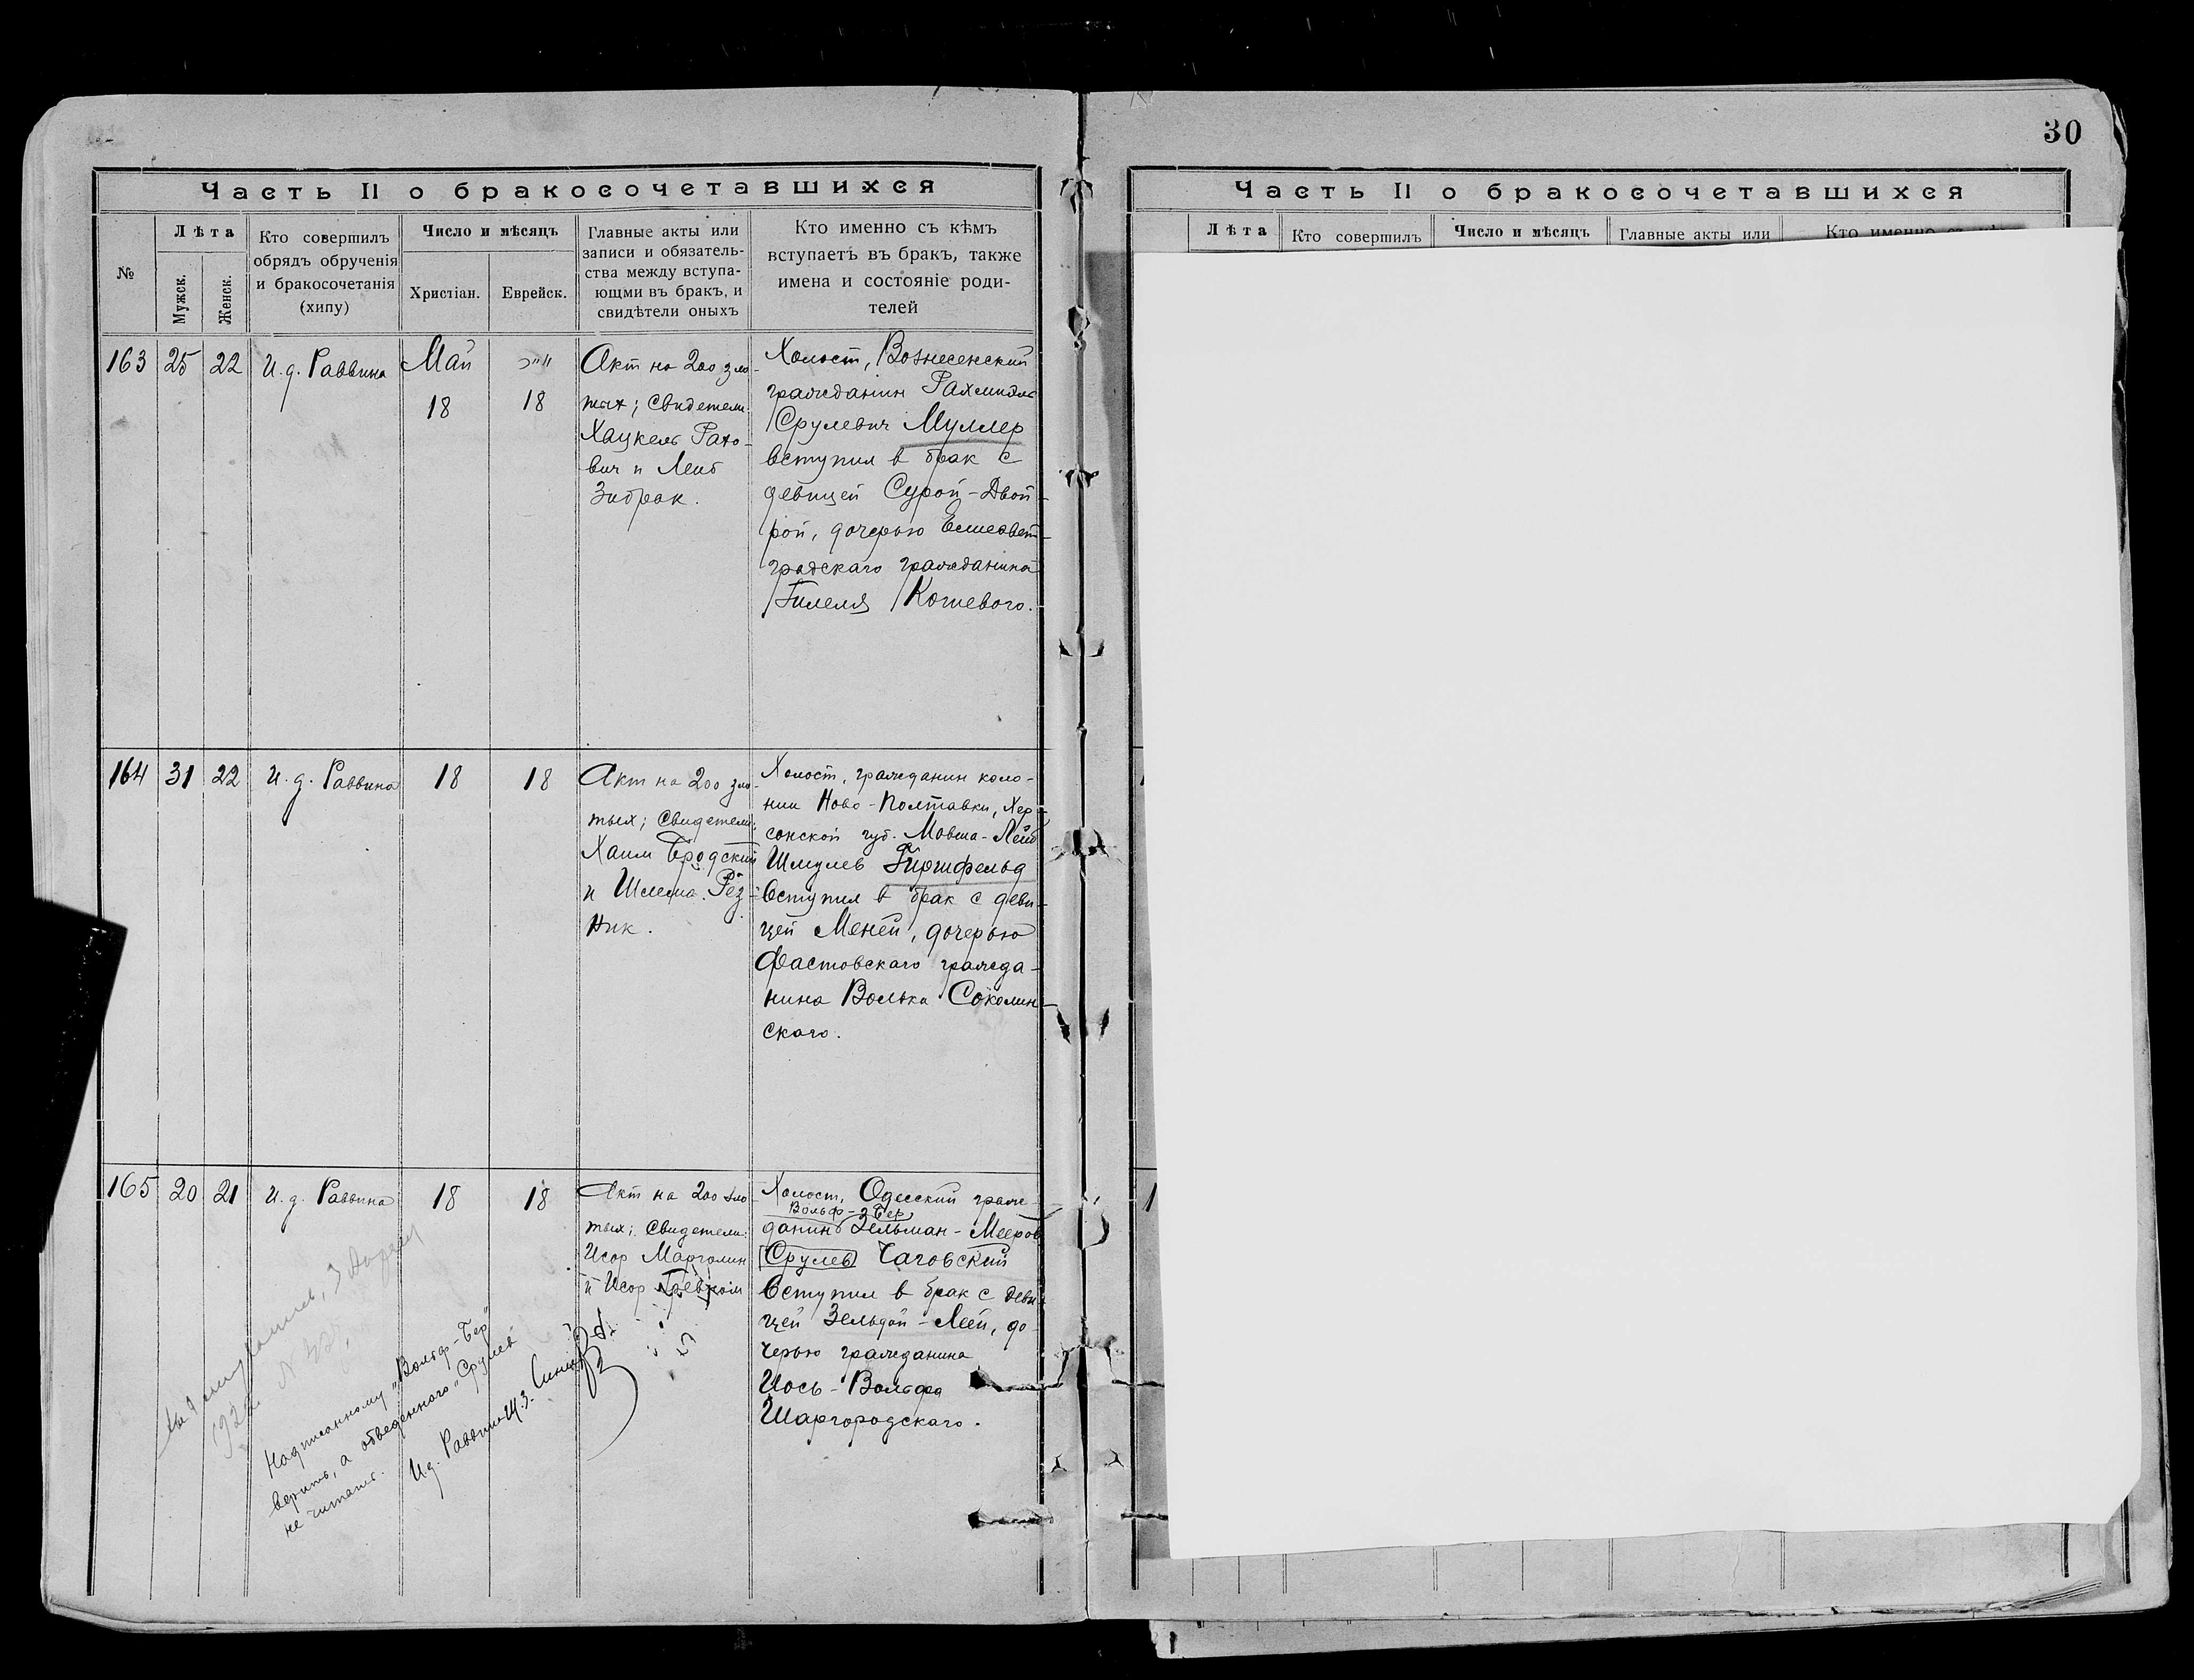 30
Часть II о бракосочетавшихся
№
Лѣта
Мужск.
Женск.
Кто совершилъ
обрядъ обрученія
и бракосочетанія
(хипу)
Число и мѣсяцъ
Христіан.
Еврейск.
Главные акты или
записи и обязатель-
ства между вступа-
ющми въ бракъ, и
свидѣтели оныхъ
Кто именно съ кѣмъ
вступаетъ въ бракъ, также
имена и состояніе роди-
телей
163
25
22
И. д. Раввина
Май
18
18
Акт на 200 зло-
тых; Свидетели:
Хацкель Рахо-
вич и Лейб
Зибрак.
Холост, Вознесенский
гражданин Рахмиэль
Срулевич Муллер
вступил в брак с
девицей Сурой-Двой-
рой, дочерью Елисавет-
градскаго гражданина
Гилеля Кошевого.
164
31
22
И. д. Раввина
18
18
Акт на 200 зло-
тых; Свидетели:
Хаим Бродский
и Шлема Рез-
ник.
Холост, гражданин коло-
нии Ново-Полтавки, Хер-
сонской губ. Мовша-Лейб
Шмулев Гиршфельд
вступил в брак с деви-
цей Меней, дочерью
Фастовскаго гражда-
нина Волька Соколин-
скаго.
165
20
21
И. д. Раввина
18
18
Акт на 200 зло-
тых; Свидетели:
Исор Марголин
и Исор
Холост, Одесский граж-
Вольф-Бер
данин Зельман-Мееров
Срулев Чаговский
вступил в брак с деви-
цей Зельдой-Леей, до-
черью гражданина
Иось-Вольфа
Шаргородскаго.
Надписанному „Вольф-Бер"
верить, а обведенного „Срулев"
не читать.
И. д. Раввина
Часть II о бракосочетавшихся
Лѣта
Кто совершилъ
Число и мѣсяцъ
Главные акты или
Кто именно съ